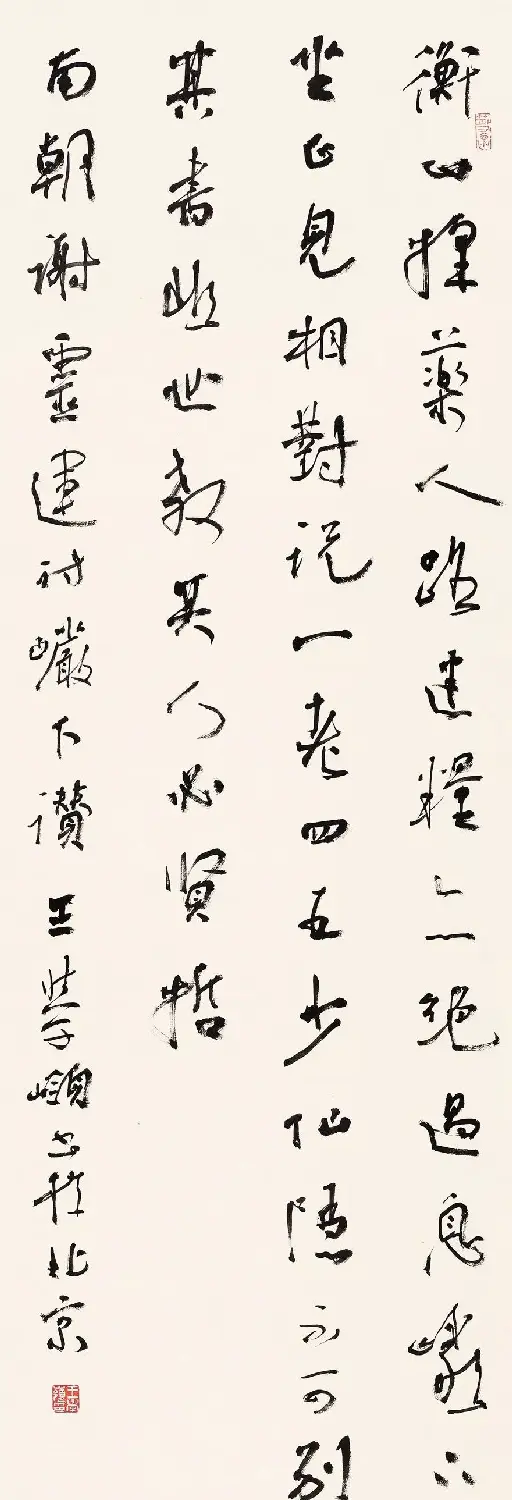 衡山採藥人路迷糧亦絕過息巖下
坐正見相對説一老四五少仙隱不可别
其書非世教其人必賢哲
南朝謝靈運詩巖下讚 王學嶺書於北京